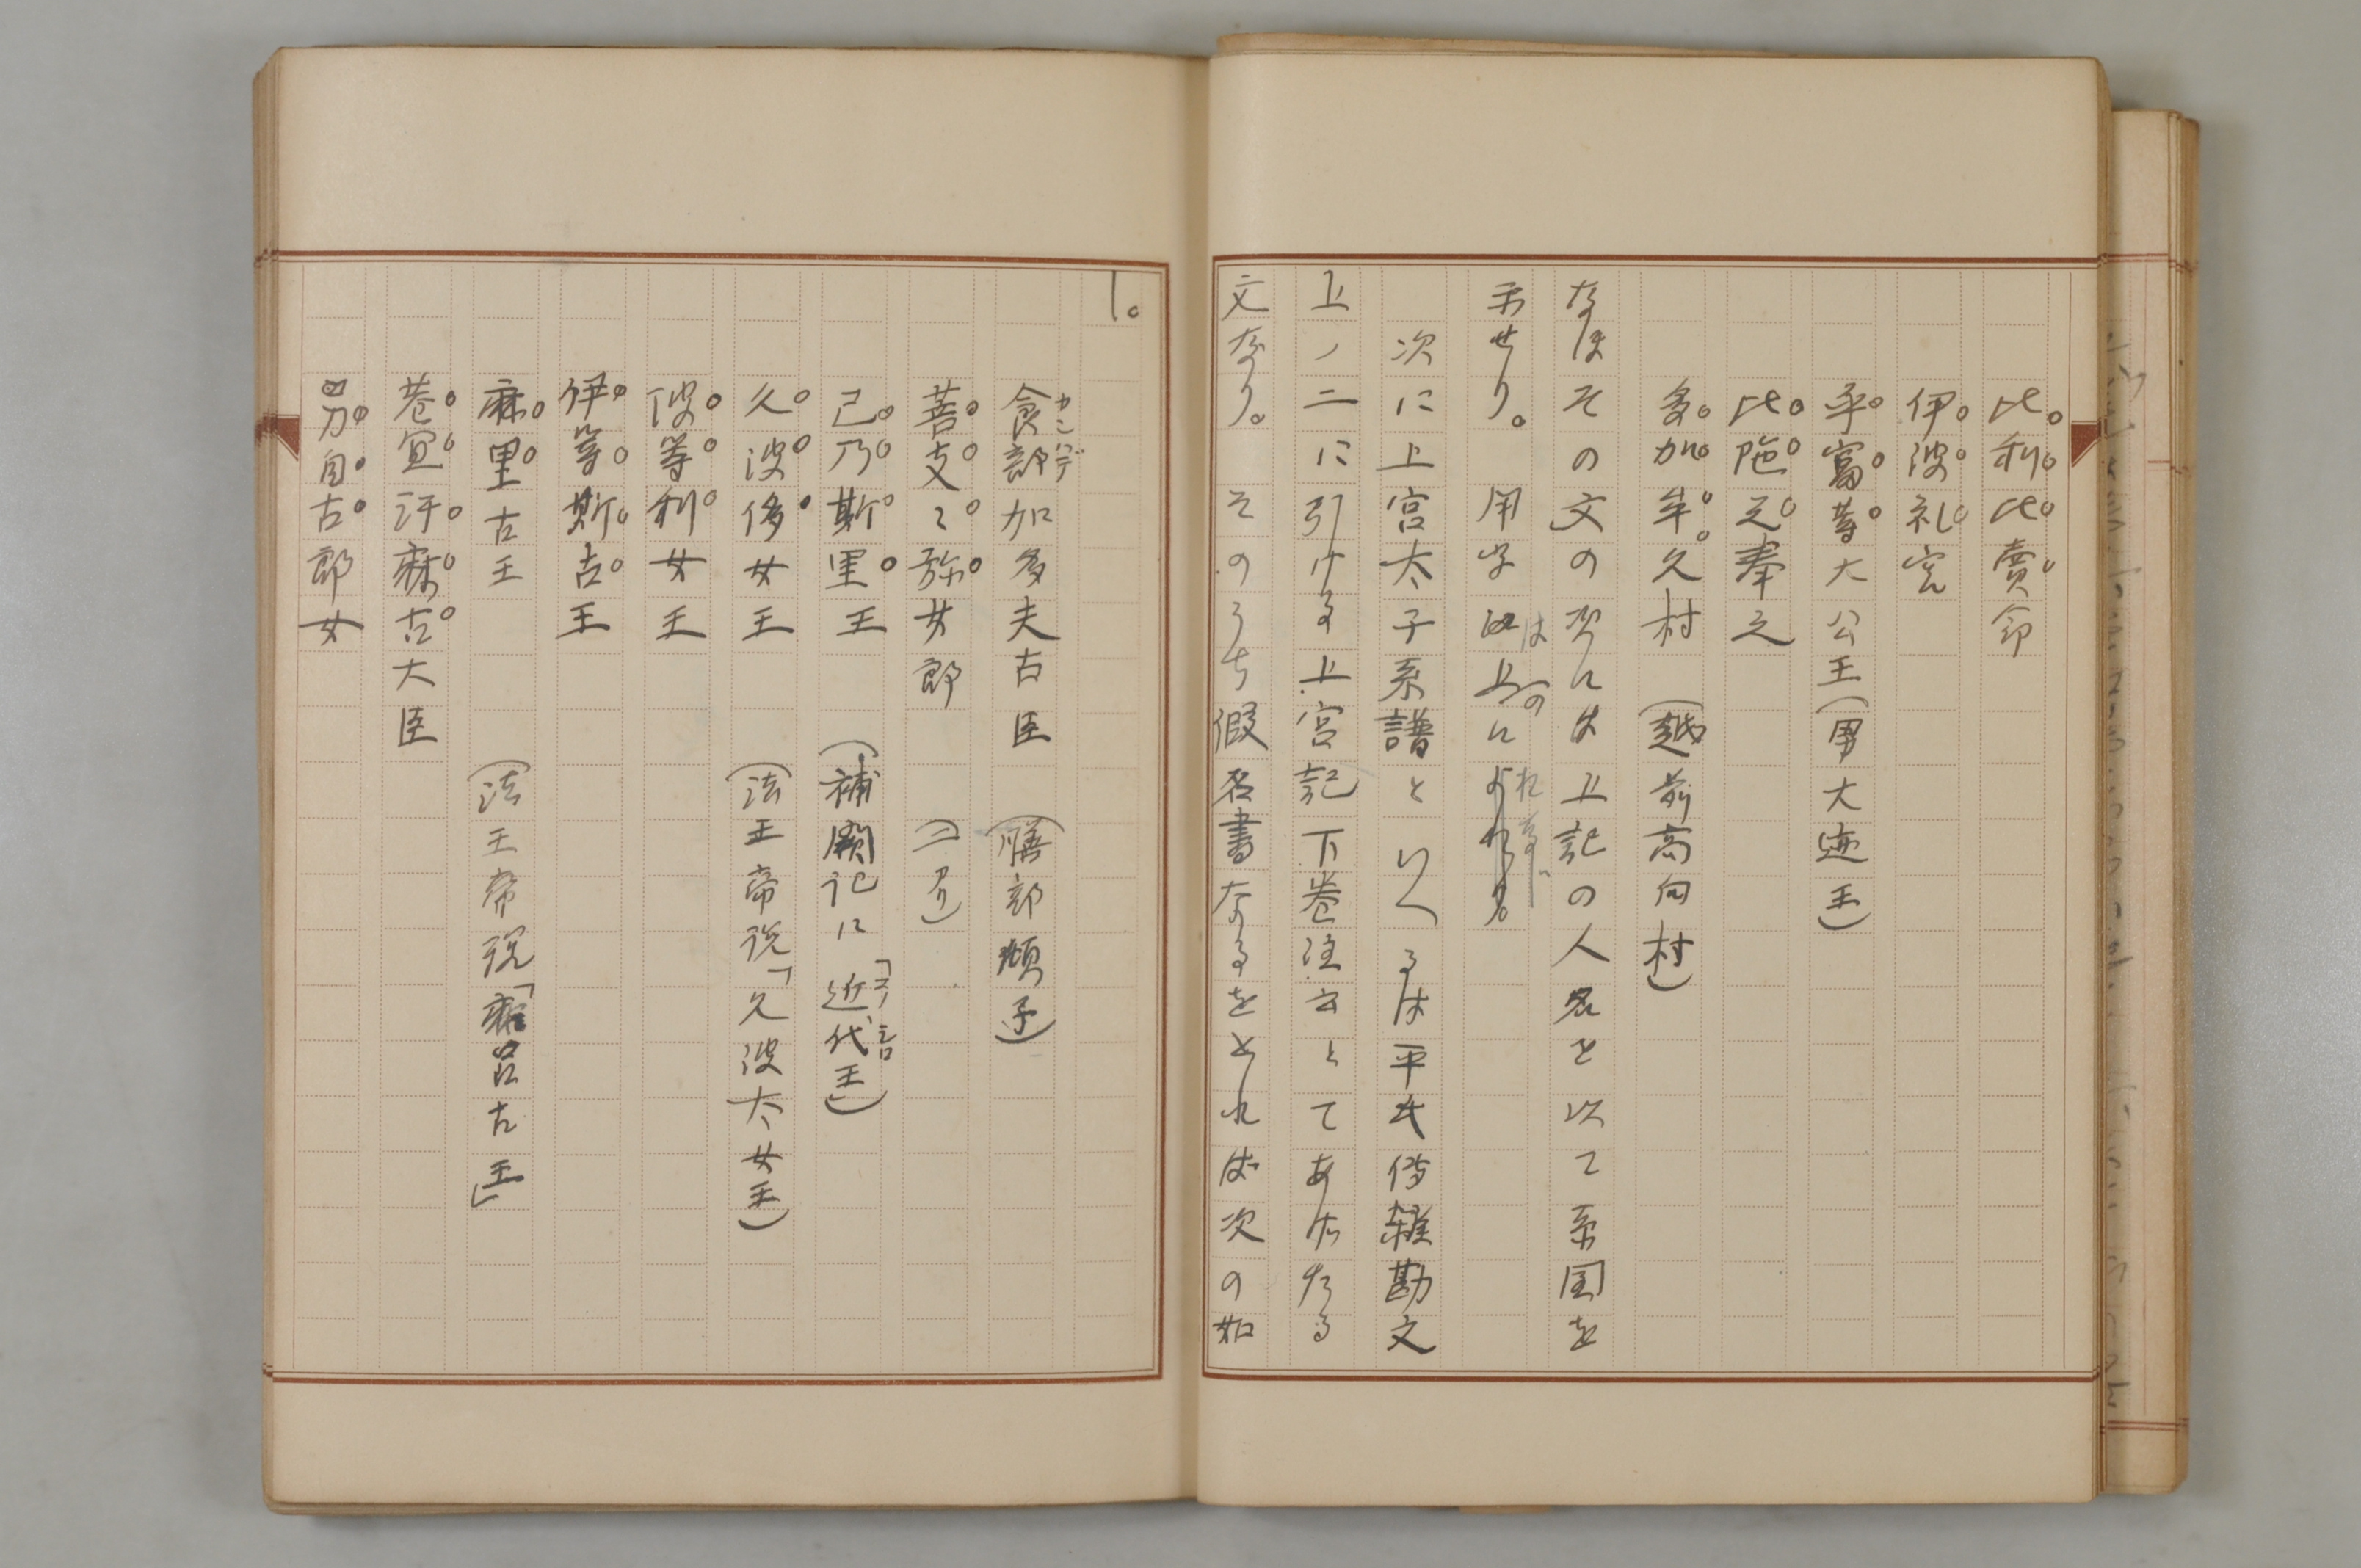 比利比賣命
伊波礼宮
乎富等大公王(男大迹王)
比陁之奉之
多加牟久村 (越前高向村)
なほその文の次には上記の人名を以て系圖を
示せり。 用字は上のに
次に上宮太子系譜といへるは平氏傳雜勘文
上ノ二に引ける上宮記下卷注云とてあげたる
文なり。 そのうち假名書なるをとれば次の如
し。
食部加多夫古臣 (膳部傾子)
カシハデ
菩支〻弥女郎
己乃斯里王 (補闕記に「近代王」)
久波侈女王 (法王帝説「久波太女王)
波等利女王
伊等斯古王
麻里古王 (法王帝説「麻呂古王」
巷宜汙麻古大臣
刀自古郎女